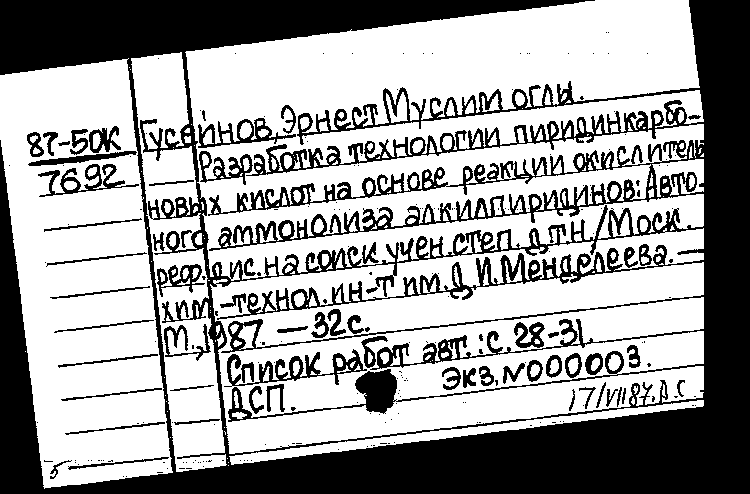 87-50К
7692
Гусейнов, Эрнест Муслим оглы.
Разработка технологии пиридинкарбо-
новых кислот на основе реакции окислитель
ного аммонолиза алкилпиридинов: Авто-
реф. дис. на соиск. учен. степ. д.т.н./Моск.
хим.-технол. ин-т им. Д.И. Менделеева. —
М., 1987. — 32 с.
Список работ авт.: с. 28-31.
ДСП. Экз. N000003.
17/VII 87. Д.С.
5